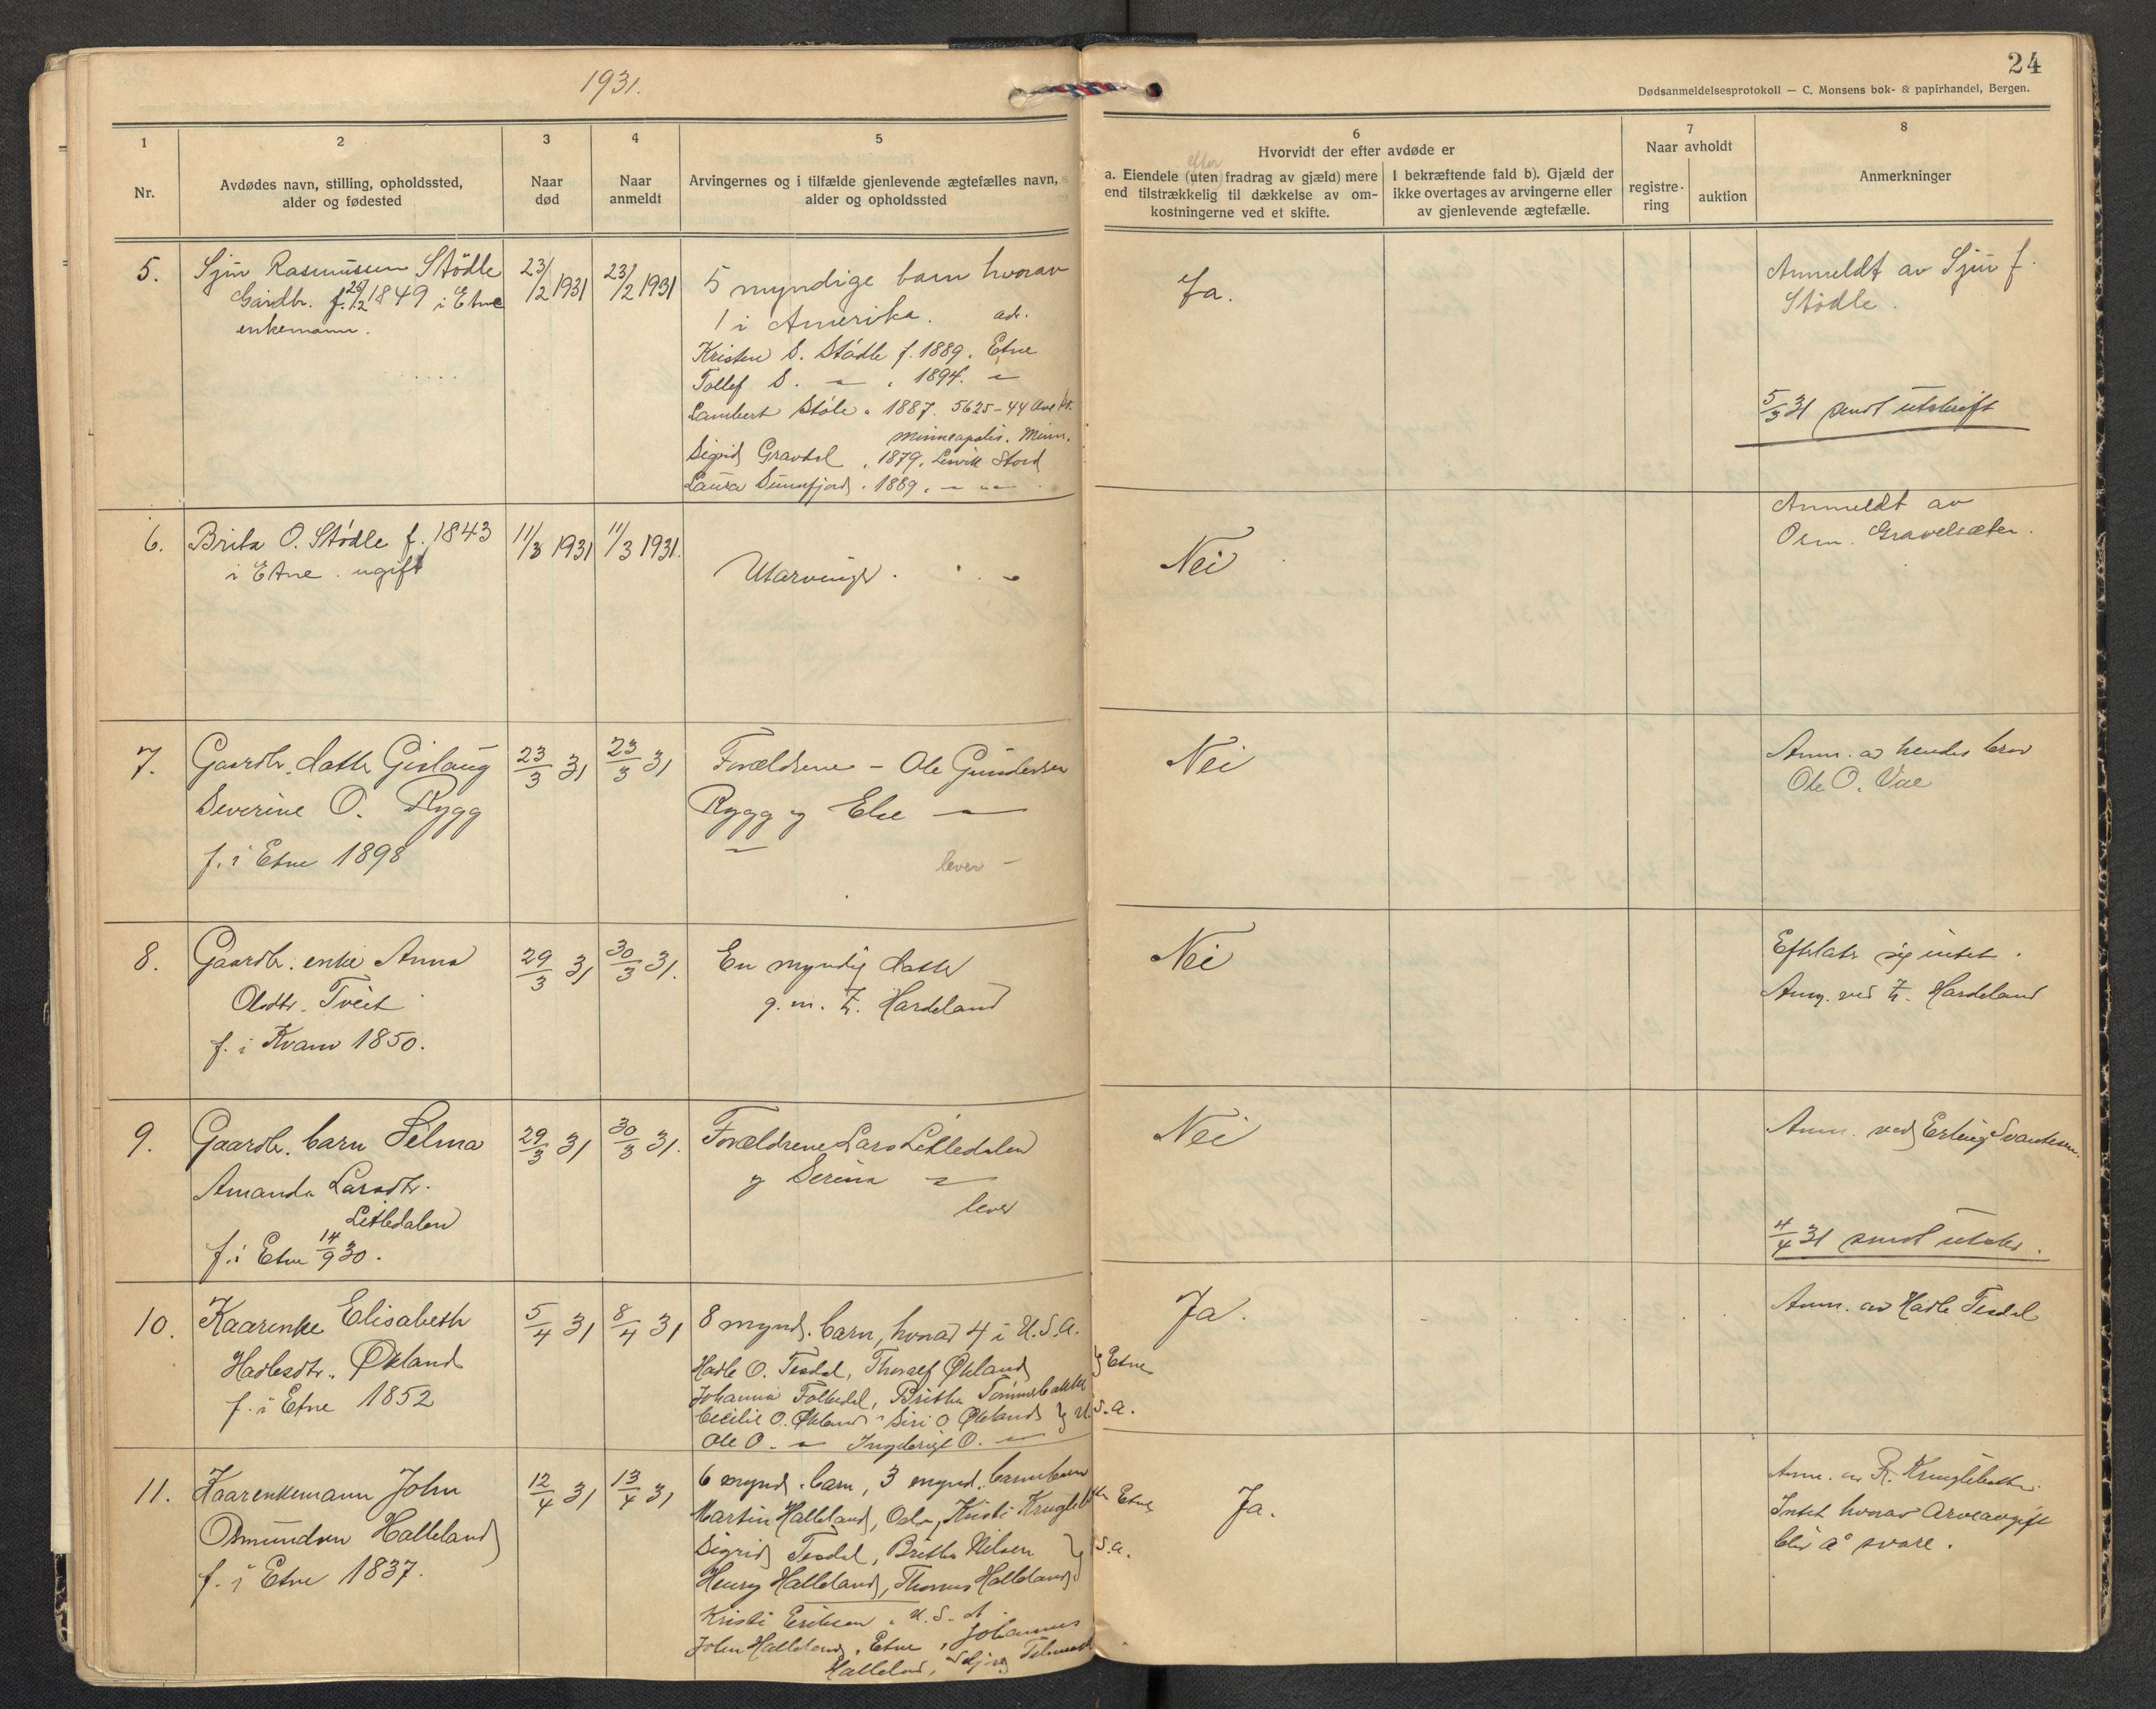 1931.
24
Dødsanmeldelsesprotokoll — C. Monsens bok- & papirhandel, Bergen.
1
Nr.
2
Avdødes navn, stilling, opholdssted,
alder og fødested
3
Naar
død
4
Naar
anmeldt
5
Arvingernes og i tilfælde gjenlevende ægtefælles navn,
alder og opholdssted
6
Hvorvidt der efter avdøde er
efter
a. Eiendele (uten fradrag av gjæld) mere
end tilstrækkelig til dækkelse av om-
kostningerne ved et skifte.
I bekræftende fald b). Gjæld der
ikke overtages av arvingerne eller
av gjenlevende ægtefælle.
7
Naar avholdt
registre-
ring
auktion
8
Anmerkninger
5.
Sjur Rasmussen Stödle
Gardbr. f. 26/12 1849 i Etne
enkemann.
23/2 1931
23/2 1931
5 myndige barn hvorav
1 i Amerika. adr.
Kristen S. Stödle f. 1889. Etne
Tollef S. — " 1894. —
Lambert Støle " 1887. 5625-44 Ave
Minneapolis. Minn.
Sigrid Gravdal " 1879. Lervik Stord
Laura Sunnfjord " 1889. — " —
Ja.
Anmeldt av Sjur f.
Stödle.
5/3 31 sendt utskrift
6.
Brita O. Stödle f. 1843
i Etne. ugift
11/3 1931
11/3 1931.
Utarvinger.
Nei
Anmeldt av
Osm. Gravelsæter.
7.
Gaardbr. datter Gislaug
Severine O. Rygg
f. i Etne 1898
23/3 31
23/3 31
Forældrene - Ole Gundersen
Rygg og Else —
lever —
Nei
Anm. av hendes bror
Ole O. Vae
8.
Gaardbr. enke Anna
Olsdtr. Tveit
f. i Kvam 1850.
29/3 31
30/3 31.
En myndig datter
g. m. T. Hardeland
Nei
Efterlater sig intet.
Anm. ved T. Hardeland
9.
Gaardbr. barn Selma
Amanda Larsdtr.
Litledalen
f. i Etne 14/9 30.
29/3 31
30/3 31.
Forældrene Lars Litledalen
og Serina —
lever
Nei
Anm. ved Erling Svantesen.
4/4 31 sendt utskr.
10.
Kaarenke Elisabeth
Hadlesdtr. Økland
f. i Etne 1852
5/4 31
8/4 31
8 mynd. barn, hvorav 4 i U.S.A.
Hadle O. Tesdal, Thoralf Økland } Etne
Johanna Folkedal, Britha Tømmerbakke
Cecilie O. Økland " Siri O Økland } U.S.A.
Ole O. — Ingeborg O. —
Ja.
Anm. av Hadle Tesdal
11.
Kaarenkemann John
Osmundsen Halleland
f. i Etne 1837.
12/4 31
13/4 31
6 mynd. barn, 3 mynd. barnebarn
Martin Halleland, Oda, Kristi Etne
Sigrid Tesdal, Britha Nilsen
Henry Halleland, Thomas Halleland } S.A.
Kristi Eriksen. U.S.A.
John Halleland, Etne, Johannes
Halleland,
Ja.
Anm. av R.
Intet hvorav Arveavgift
blir å svare.